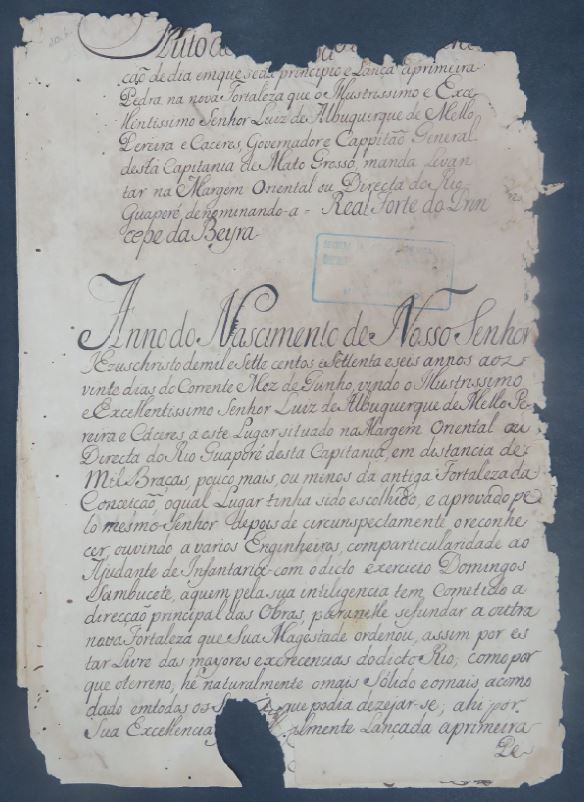 Auto de
ção de dia em que se da principio e Lança aprimeira
Pedra na nova Fortaleza que o Illustrissimo e Exce
llentissimo Senhor Luiz de Albuquerque de Mello
Pereira e Caceres, Governador e Cappitão General
desta Capitania de Mato Grosso, manda Levan
tar na Margem Oriental ou Directa do Rio
Guaporé, denominando-a = Real Forte do Prin
cepe da Beyra
Anno do Nascimento de Nosso Senhor
JEzus christo de mil e Sette centos e Settenta e seis annos aos
vinte dias do Corrente Mez de Junho, vindo o Illustrissimo
e Excellentissimo Senhor Luiz de Albuquerque de Mello Pe
reira e Cáceres a este Lugar situado na Margem Oriental ou
Directa do Rio Guaporé desta Capitania, em distancia de
Mil Braças, pouco mais, ou minos da antiga Fortaleza da
Conceicão, o qual Lugar tinha sido escolhido, e aprovado pe
lo mesmo Senhor depois de circunspectamente o reconhe
cer, ouvindo a varios Enginheiros, com particularidade ao
Ajudante de Infantaria com o dicto exercicio Domingos
Sambucete, a quem pela sua intiligencia tem Cometido a
direcção principal das Obras, para nelle se fundar a outra
nova Fortaleza que Sua Magestade ordenou, assim por es
tar Livre das mayores excrecencias do dicto Rio, como por
que o terreno, hé naturalmente o mais Sólido e o mais acomo
dado em todos os que podia dezejar-se; ahi por
Sua Excellencia lmente Lançada aprimeira
Pe